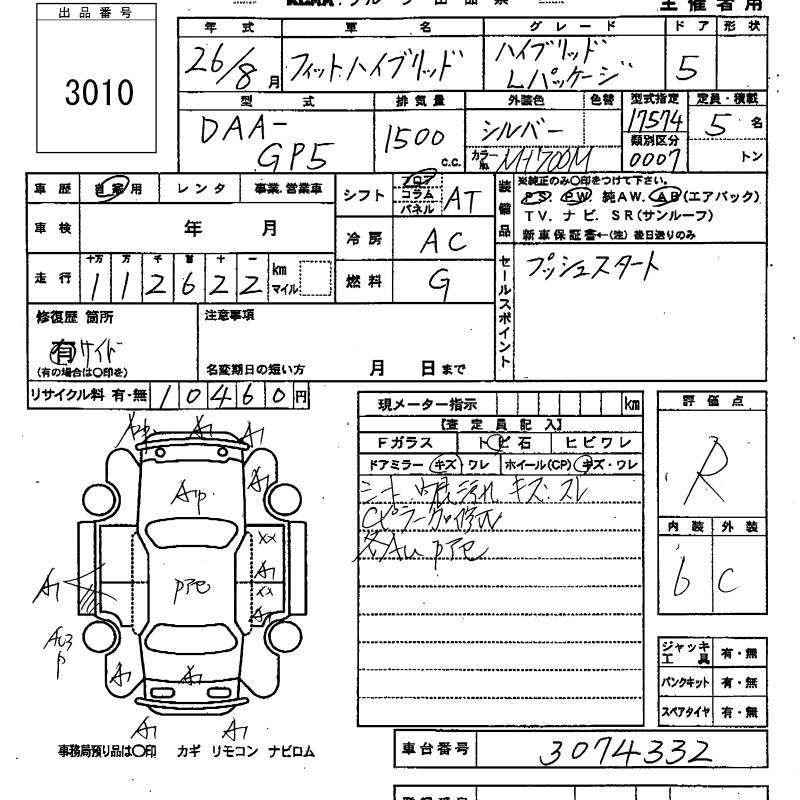 出品番号
3010
主催者用
年式 車名 グレード ドア 形状
26/8月 フィットハイブリッド ハイブリッド Lパッケージ 5
型式 排気量 外装色 色替 型式指定 定員・積載
DAA-GP5 1500 c.c. シルバー 17574 5名
カラーNo. NH700M 類別区分 0007 トン
車歴 自家用 レンタ 事業.営業車
車検 年 月
走行 十万 万 千 百 十 一
1 1 2 6 2 2 km マイル
シフト フロア コラム パネル AT
冷房 AC
燃料 G
装備品
※純正のみ○印をつけて下さい。
PS. PW. 純AW. AB(エアバック)
TV. ナビ. SR(サンルーフ)
新車保証書←(注) 後日送りのみ
セールスポイント
プッシュスタート
修復歴 箇所
有 サイド
(有の場合は○印を)
注意事項
名変期日の短い方 月 日まで
リサイクル料 有・無 10460円
現メーター指示 km
【査定員記入】
Fガラス トビ石 ヒビワレ
ドアミラー キズ・ワレ ホイール(CP) キズ・ワレ
キズ・スレ
評価点
R
内装 外装
6 C
ジャッキ 工具 有・無
パンクキット 有・無
スペアタイヤ 有・無
A1 A1
A1
XX
A1
XX
A1
A1
A1
A1
事務局預り品は○印 カギ リモコン ナビロム
車台番号 3074332